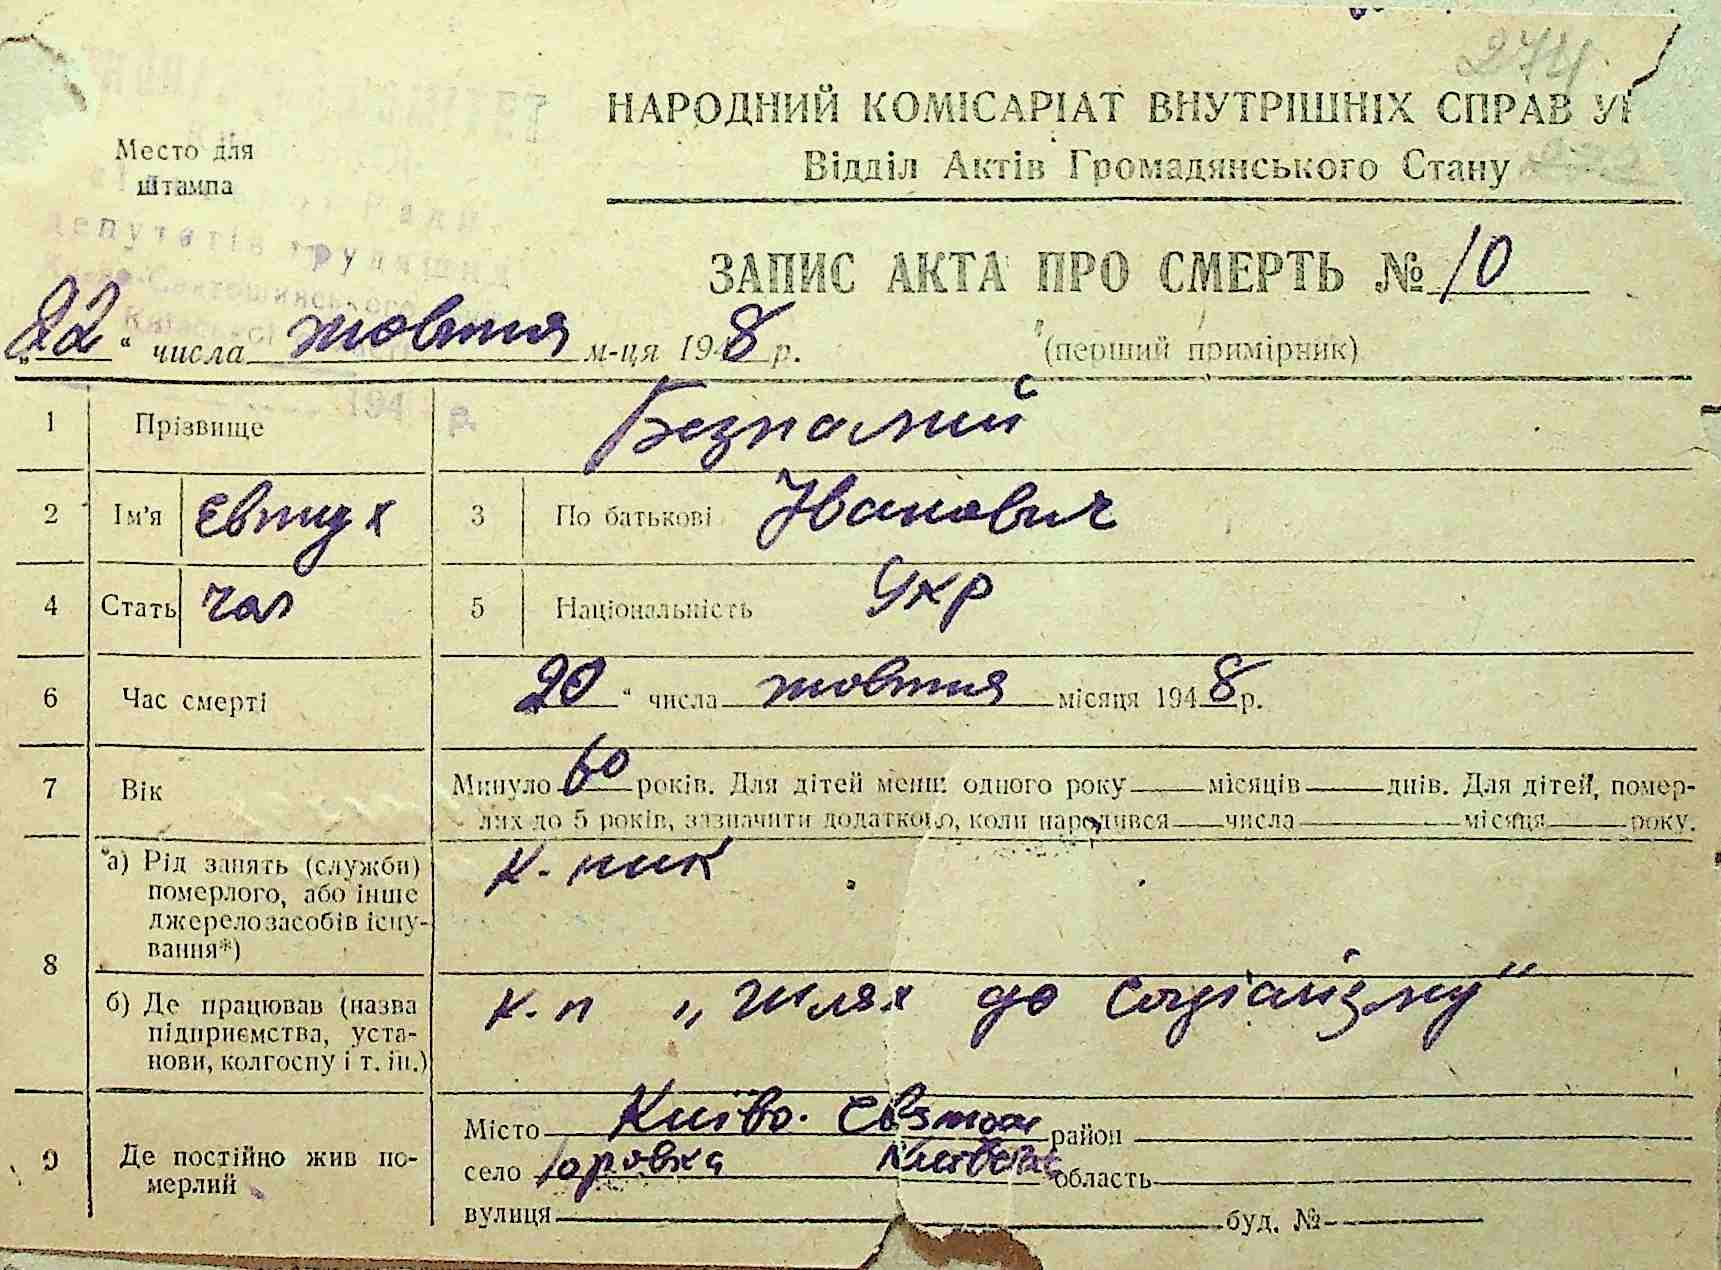 274
НАРОДНИЙ КОМІСАРІАТ ВНУТРІШНІХ СПРАВ УР
Відділ Актів Громадянського Стану
Место для
штампа
Ради
депутатів трудящих
Києво-Святошинського
Київської
194 р.
ЗАПИС АКТА ПРО СМЕРТЬ № 10
„22“ числа жовтня м-ця 1948 р.
(перший примірник)
1 Прізвище Безпалий
2 Ім'я Євтух 3 По батькові Іванович
4 Стать чол 5 Національність Укр
6 Час смерті 20 “ числа жовтня місяця 1948 р.
7 Вік Минуло 60 років. Для дітей менш одного року місяців днів. Для дітей, помер-
лих до 5 років, зазначити додатково, коли народився числа місяця року.
8 а) Рід занять (служби)
померлого, або інше
джерело засобів існу-
вання*)
к-ник
б) Де працював (назва
підприємства, уста-
нови, колгоспу і т. ін.)
к-п „Шлях до соціалізму"
9 Де постійно жив по-
мерлий
Місто Київо-Святош район
село Юровка Київська область
вулиця буд. №